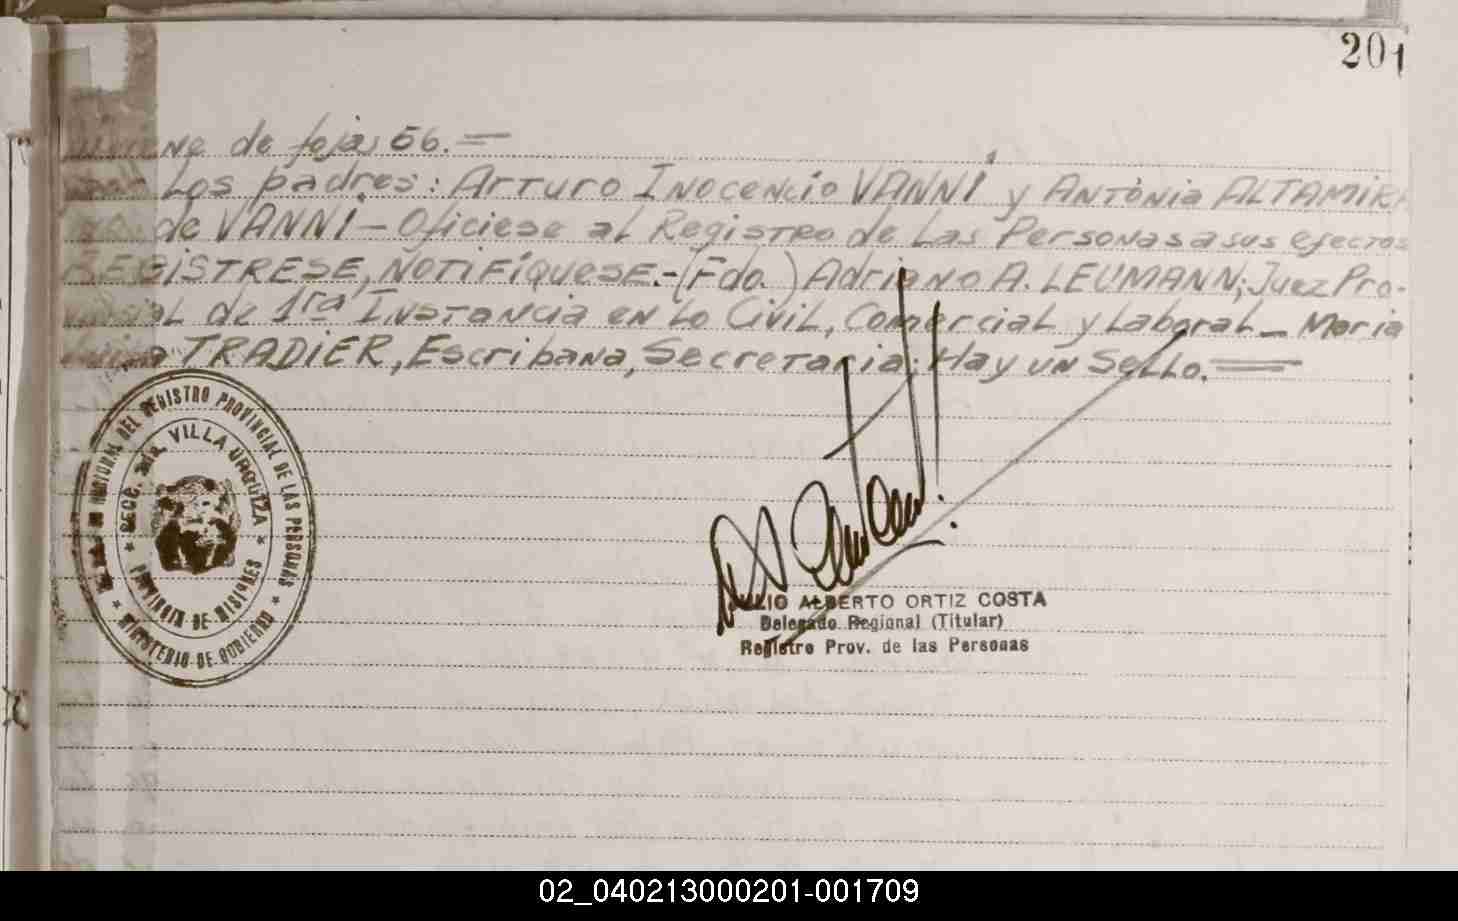 201
de fojas 56.=
Los padres: Arturo Inocencio VANNI y Antonia ALTAMIR
de VANNI - Oficiese al Registro de Las Personas a sus efectos
REGISTRESE, NOTIFÍQUESE.-(Fdo.) Adriano A. LEUMANN; Juez Pro-
de 1ra Instancia en Lo Civil, Comercial y Laboral - Maria
TRADIER, Escribana, Secretaria; Hay un Sello.=
REGISTRO PROVINCIAL DE LAS PERSONAS
VILLA URQUIZA
PROVINCIA DE MISIONES
MINISTERIO DE GOBIERNO
ALBERTO ORTIZ COSTA
Delegado Regional (Titular)
Registro Prov. de las Personas
02_040213000201-001709